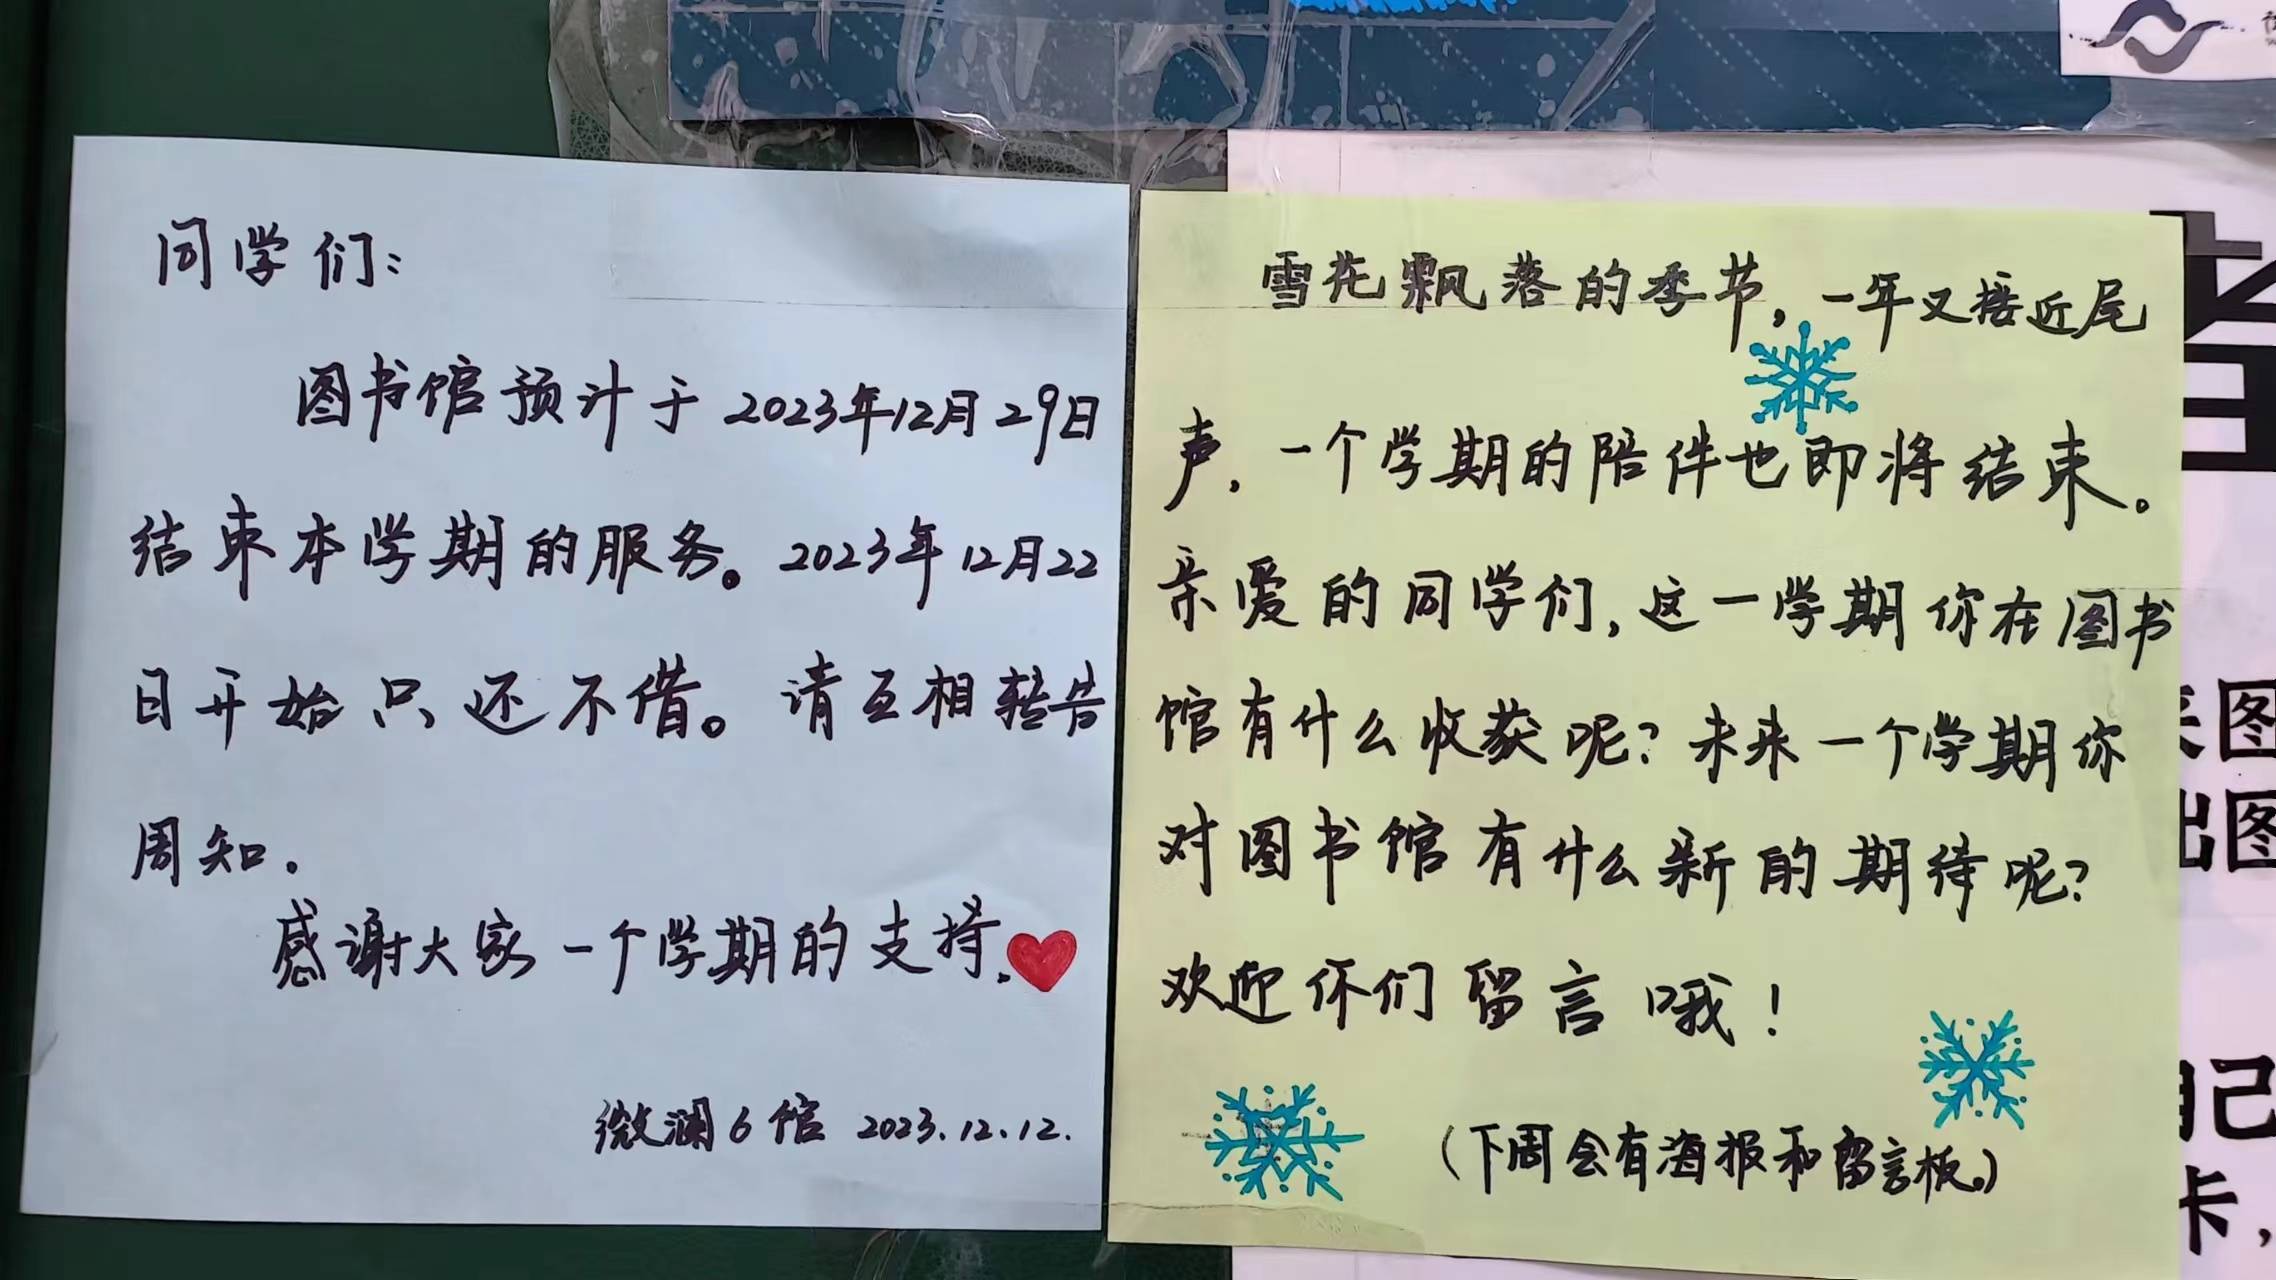 同学们：
图书馆预计于2023年12月29日
结束本学期的服务。2023年12月22
日开始只还不借。请互相转告
周知.
感谢大家一个学期的支持.
微澜6馆 2023.12.12.
雪花飘落的季节，一年又接近尾
声，一个学期的陪伴也即将结束。
亲爱的同学们，这一学期你在图书
馆有什么收获呢？未来一个学期你
对图书馆有什么新的期待呢？
欢迎你们留言哦！
（下周会有海报和留言板。）
图
出图
自己
卡，